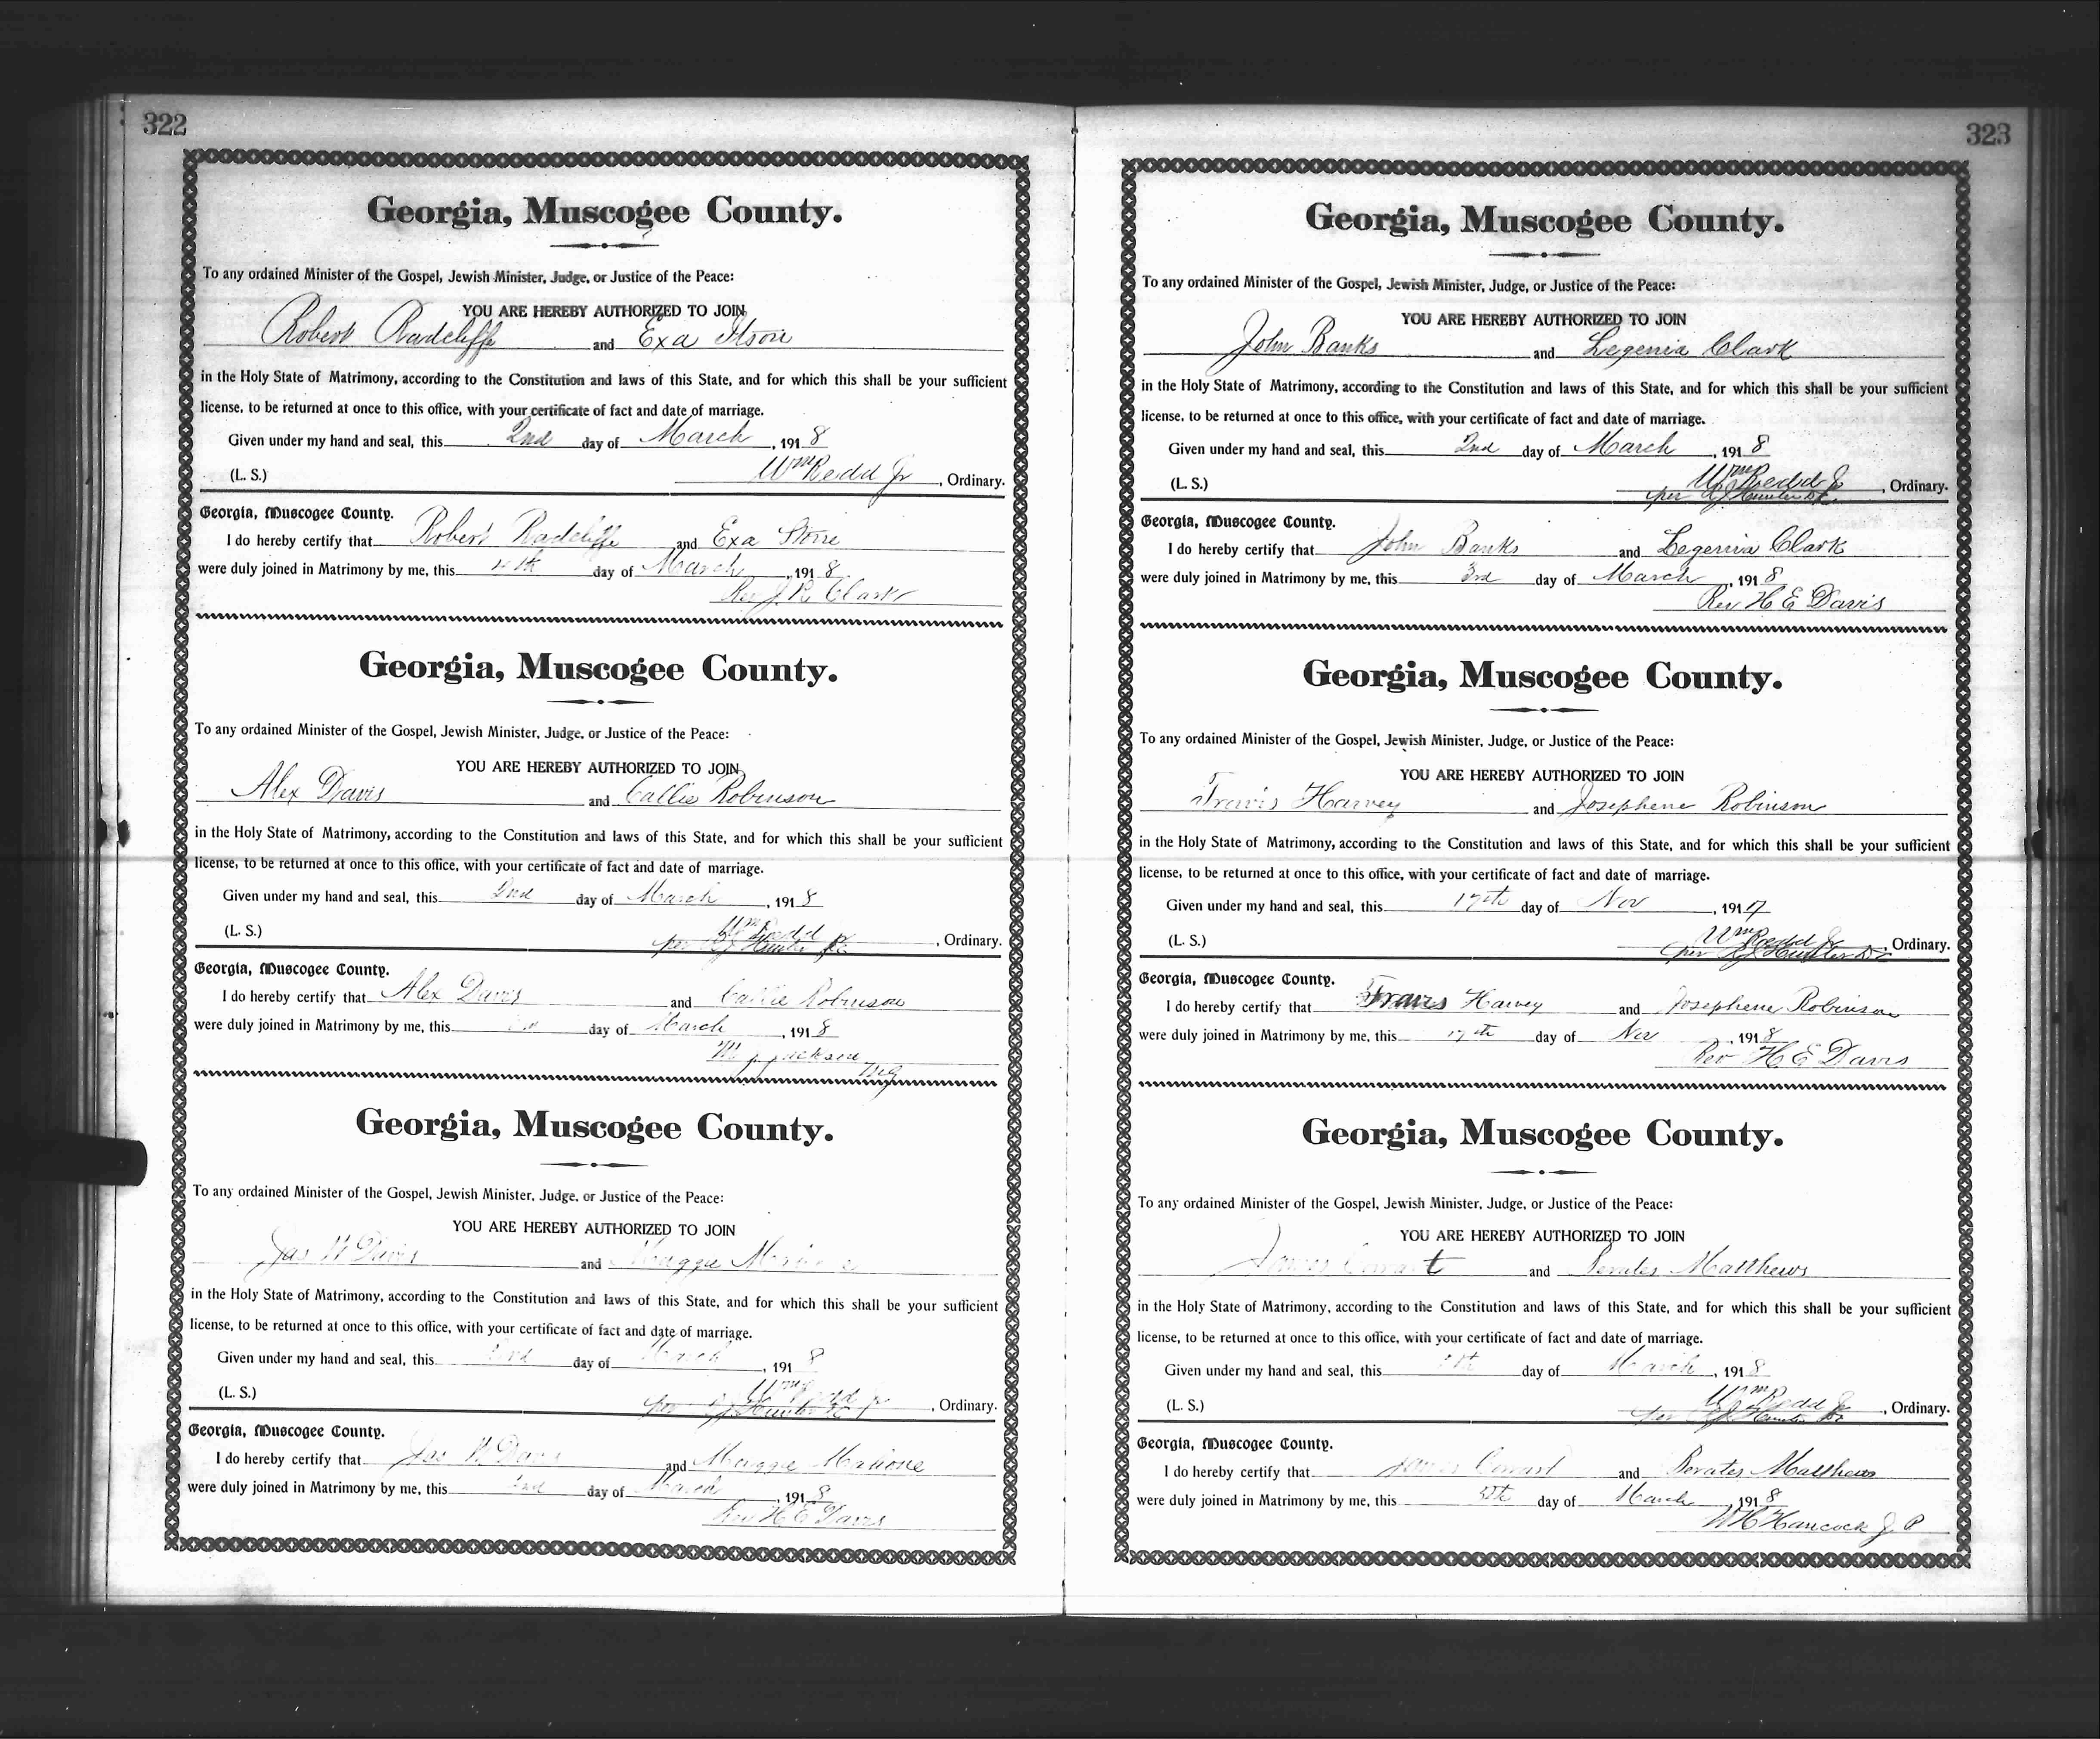 322
Georgia, Muscogee County.
To any ordained Minister of the Gospel, Jewish Minister, Judge, or Justice of the Peace:
YOU ARE HEREBY AUTHORIZED TO JOIN
Robert Radcliffe and Exa Stone
in the Holy State of Matrimony, according to the Constitution and laws of this State, and for which this shall be your sufficient
license, to be returned at once to this office, with your certificate of fact and date of marriage.
Given under my hand and seal, this 2nd day of March, 1918
(L. S.) Wm Redd Jr, Ordinary.
Georgia, Muscogee County.
I do hereby certify that Robert Radcliffe and Exa Stone
were duly joined in Matrimony by me, this day of March, 1918
Rev J. R. Clark
Georgia, Muscogee County.
To any ordained Minister of the Gospel, Jewish Minister, Judge, or Justice of the Peace:
YOU ARE HEREBY AUTHORIZED TO JOIN
Alex Davis and Callie Robinson
in the Holy State of Matrimony, according to the Constitution and laws of this State, and for which this shall be your sufficient
license, to be returned at once to this office, with your certificate of fact and date of marriage.
Given under my hand and seal, this 2nd day of March, 1918
(L. S.) Wm Redd
per Hunter, Ordinary.
Georgia, Muscogee County.
I do hereby certify that Alex Davis and Callie Robinson
were duly joined in Matrimony by me, this day of March, 1918
M J Jackson
MG
Georgia, Muscogee County.
To any ordained Minister of the Gospel, Jewish Minister, Judge, or Justice of the Peace:
YOU ARE HEREBY AUTHORIZED TO JOIN
Jas W Davis and Maggie
in the Holy State of Matrimony, according to the Constitution and laws of this State, and for which this shall be your sufficient
license, to be returned at once to this office, with your certificate of fact and date of marriage.
Given under my hand and seal, this day of March, 1918
(L. S.) Wm Redd Jr
per Hunter, Ordinary.
Georgia, Muscogee County.
I do hereby certify that Jas W Davis and Maggie Malone
were duly joined in Matrimony by me, this 2nd day of March, 1918
Rev H E Davis
323
Georgia, Muscogee County.
To any ordained Minister of the Gospel, Jewish Minister, Judge, or Justice of the Peace:
YOU ARE HEREBY AUTHORIZED TO JOIN
John Banks and Legenia Clark
in the Holy State of Matrimony, according to the Constitution and laws of this State, and for which this shall be your sufficient
license, to be returned at once to this office, with your certificate of fact and date of marriage.
Given under my hand and seal, this 2nd day of March, 1918
(L. S.) Wm Redd Jr
per Hunter, Ordinary.
Georgia, Muscogee County.
I do hereby certify that John Banks and Legenia Clark
were duly joined in Matrimony by me, this 3rd day of March, 1918
Rev H E Davis
Georgia, Muscogee County.
To any ordained Minister of the Gospel, Jewish Minister, Judge, or Justice of the Peace:
YOU ARE HEREBY AUTHORIZED TO JOIN
Travis Harvey and Josephene Robinson
in the Holy State of Matrimony, according to the Constitution and laws of this State, and for which this shall be your sufficient
license, to be returned at once to this office, with your certificate of fact and date of marriage.
Given under my hand and seal, this 17th day of Nov, 1917
(L. S.) Wm Redd Jr
per Hunter, Ordinary.
Georgia, Muscogee County.
I do hereby certify that Travis Harvey and Josephene Robinson
were duly joined in Matrimony by me, this 17th day of Nov, 1918
Rev H E Davis
Georgia, Muscogee County.
To any ordained Minister of the Gospel, Jewish Minister, Judge, or Justice of the Peace:
YOU ARE HEREBY AUTHORIZED TO JOIN
James and Matthews
in the Holy State of Matrimony, according to the Constitution and laws of this State, and for which this shall be your sufficient
license, to be returned at once to this office, with your certificate of fact and date of marriage.
Given under my hand and seal, this day of March, 1918
(L. S.) Wm Redd Jr
per Hunter, Ordinary.
Georgia, Muscogee County.
I do hereby certify that James and Matthews
were duly joined in Matrimony by me, this 5th day of March, 1918
W H Hancock J. P